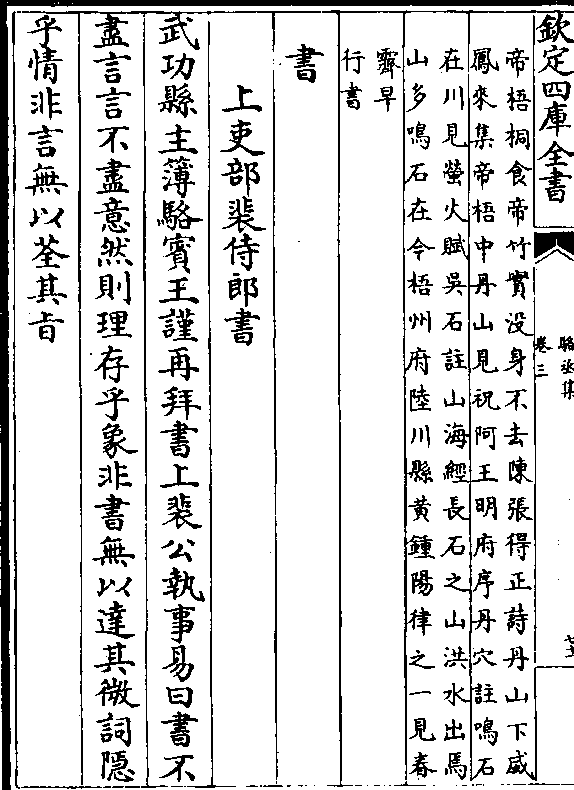 欽定四庫全書
駱丞集
卷三
帝梧桐食帝竹實没身不去陳張得正詩丹山下威
鳳來集帝梧中丹山見祝阿王明府序丹穴註鳴石
在川見螢火賦吳石註山海經長石之山洪水出焉
山多鳴石在今梧州府陸川縣黃鍾陽律之一見春
霽早
行書
書
上吏部裴侍郎書
武功縣主簿駱賓王謹再拜書上裴公執事易曰書不
盡言言不盡意然則理存乎象非書無以達其微詞隱
乎情非言無以荃其㫖